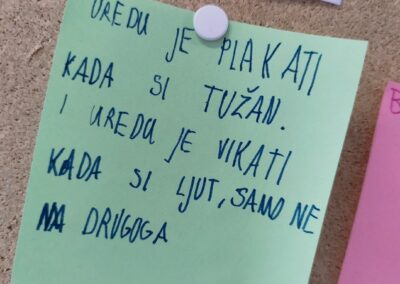 UREDU JE PLAKATI
KADA SI TUŽAN.
I UREDU JE VIKATI
KADA SI LJUT, SAMO NE
NA DRUGOGA